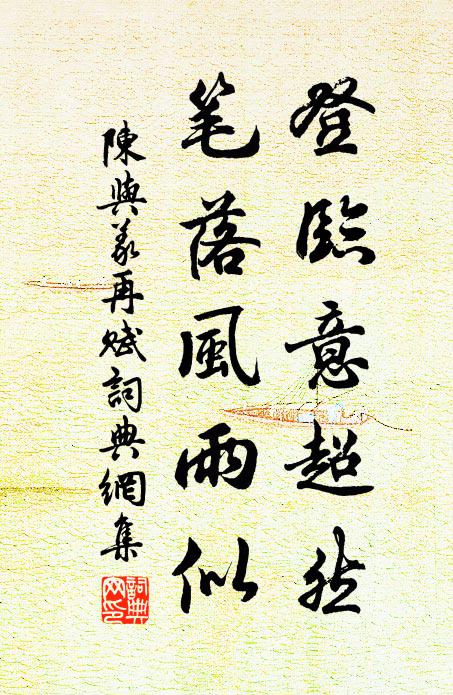 登臨意超然
笔落風雨似
陳與義再赋詞典網集
詞典網印